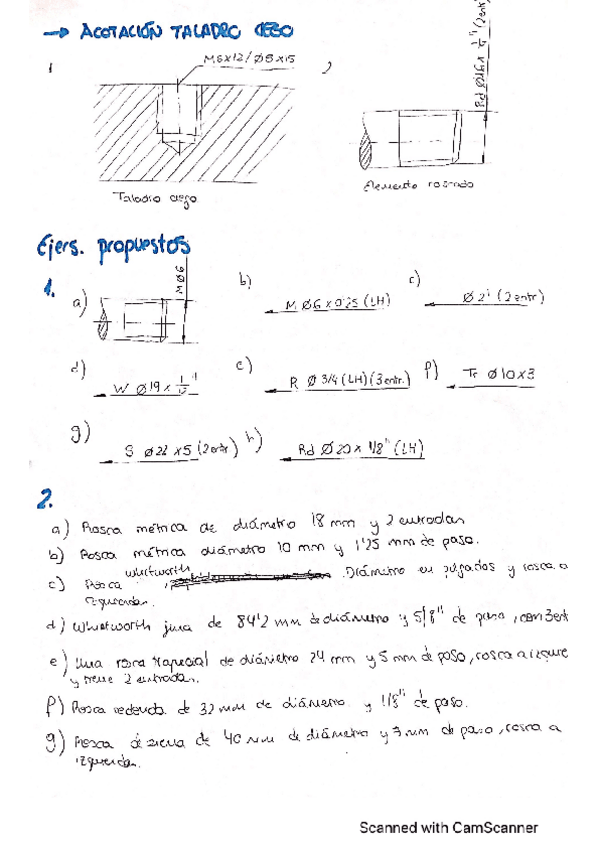 → ACOTACIÓN TALADRO CIEGO
M6x12/Ø5x15
Rd Ø16x
Taladro ciego
Elemento roscado
Ejers. propuestos
1.
a) M Ø6
b) M Ø6 x 0'25 (LH)
c) Ø 2" (2 entr)
d) W Ø19 x 1/12"
e) R Ø 3/4 (LH) (3 entr.)
f) Tr Ø10x3
g) S Ø22 x5 (2 entr)
h) Rd Ø20 x 1/8" (LH)
2.
a) Rosca métrica de diámetro 18 mm y 2 entradas
b) Rosca métrica diámetro 10 mm y 1'25 mm de paso.
c) Rosca whitworth. Diámetro en pulgadas y rosca a
izquierdas.
d) Whitworth fina de 84'2 mm de diámetro y 5/8" de paso, con 3 ent
e) Una rosca trapecial de diámetro 24 mm y 5 mm de paso, rosca a izquie
y tiene 2 entradas.
f) Rosca redonda de 32 mm de diámetro y 1/8" de paso.
g) Rosca de sierra de 40 mm de diámetro y 7 mm de paso, rosca a
izquierdas.
Scanned with CamScanner